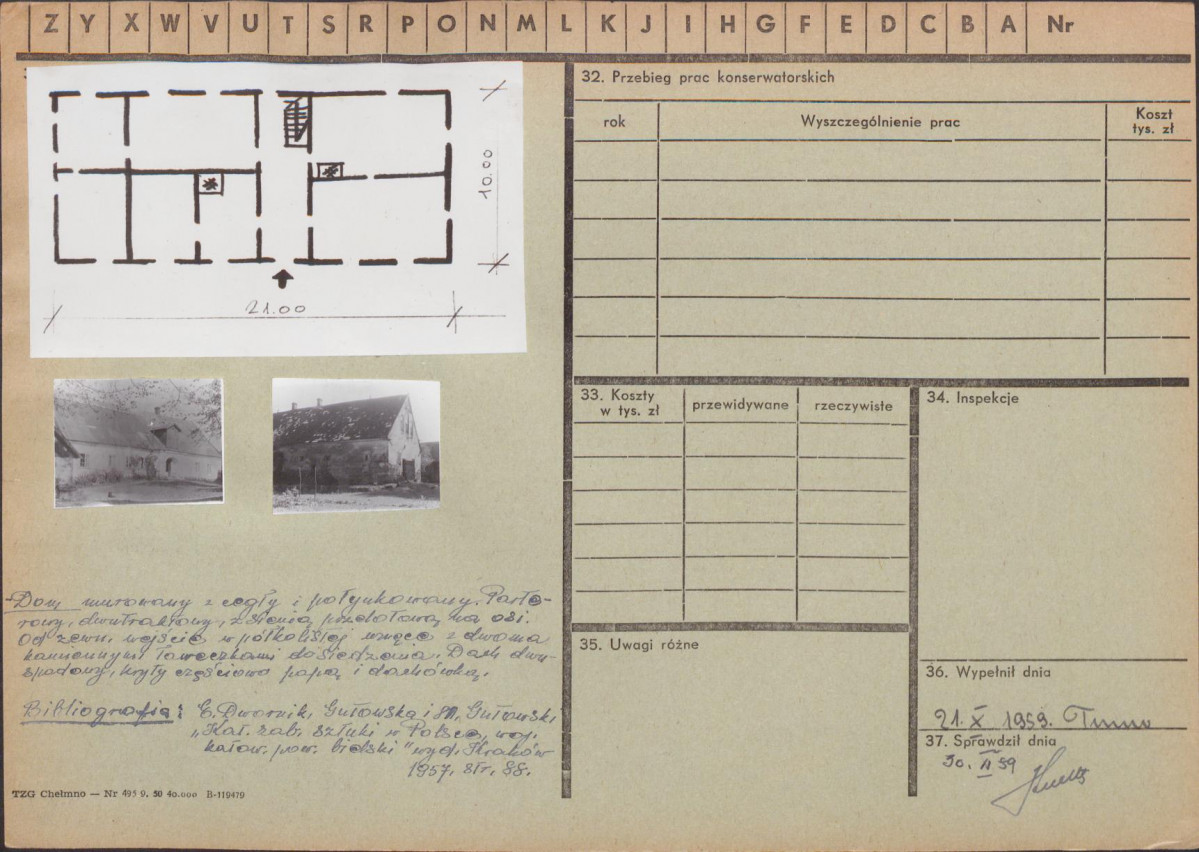 Z Y X W V U T S R P O N M L K J I H G F E D C B A Nr
10.00
21.00
Dom murowany z cegły i potynkowany. Parte-
rowy, dwutraktowy, z sienią przelotową na osi.
Od zewn. wejście w półkolistej wnęce z dwoma
kamiennymi ławeczkami do siedzenia. Dach dwu-
spadowy, kryty częściowo papą i dachówką.
Bibliografia: E. Dwornik, Gutowska i M. Gutowski
"Kat. zab. sztuki w Polsce, woj.
katow. pow. bielski" wyd. Kraków
1957, str. 88.
TZG Chełmno — Nr 495 9. 50 40.000 B-119479
32. Przebieg prac konserwatorskich
rok
Wyszczególnienie prac
Koszt
tys. zł
33. Koszty
w tys. zł
przewidywane
rzeczywiste
34. Inspekcje
35. Uwagi różne
36. Wypełnił dnia
21. X 1959.
37. Sprawdził dnia
30. 59